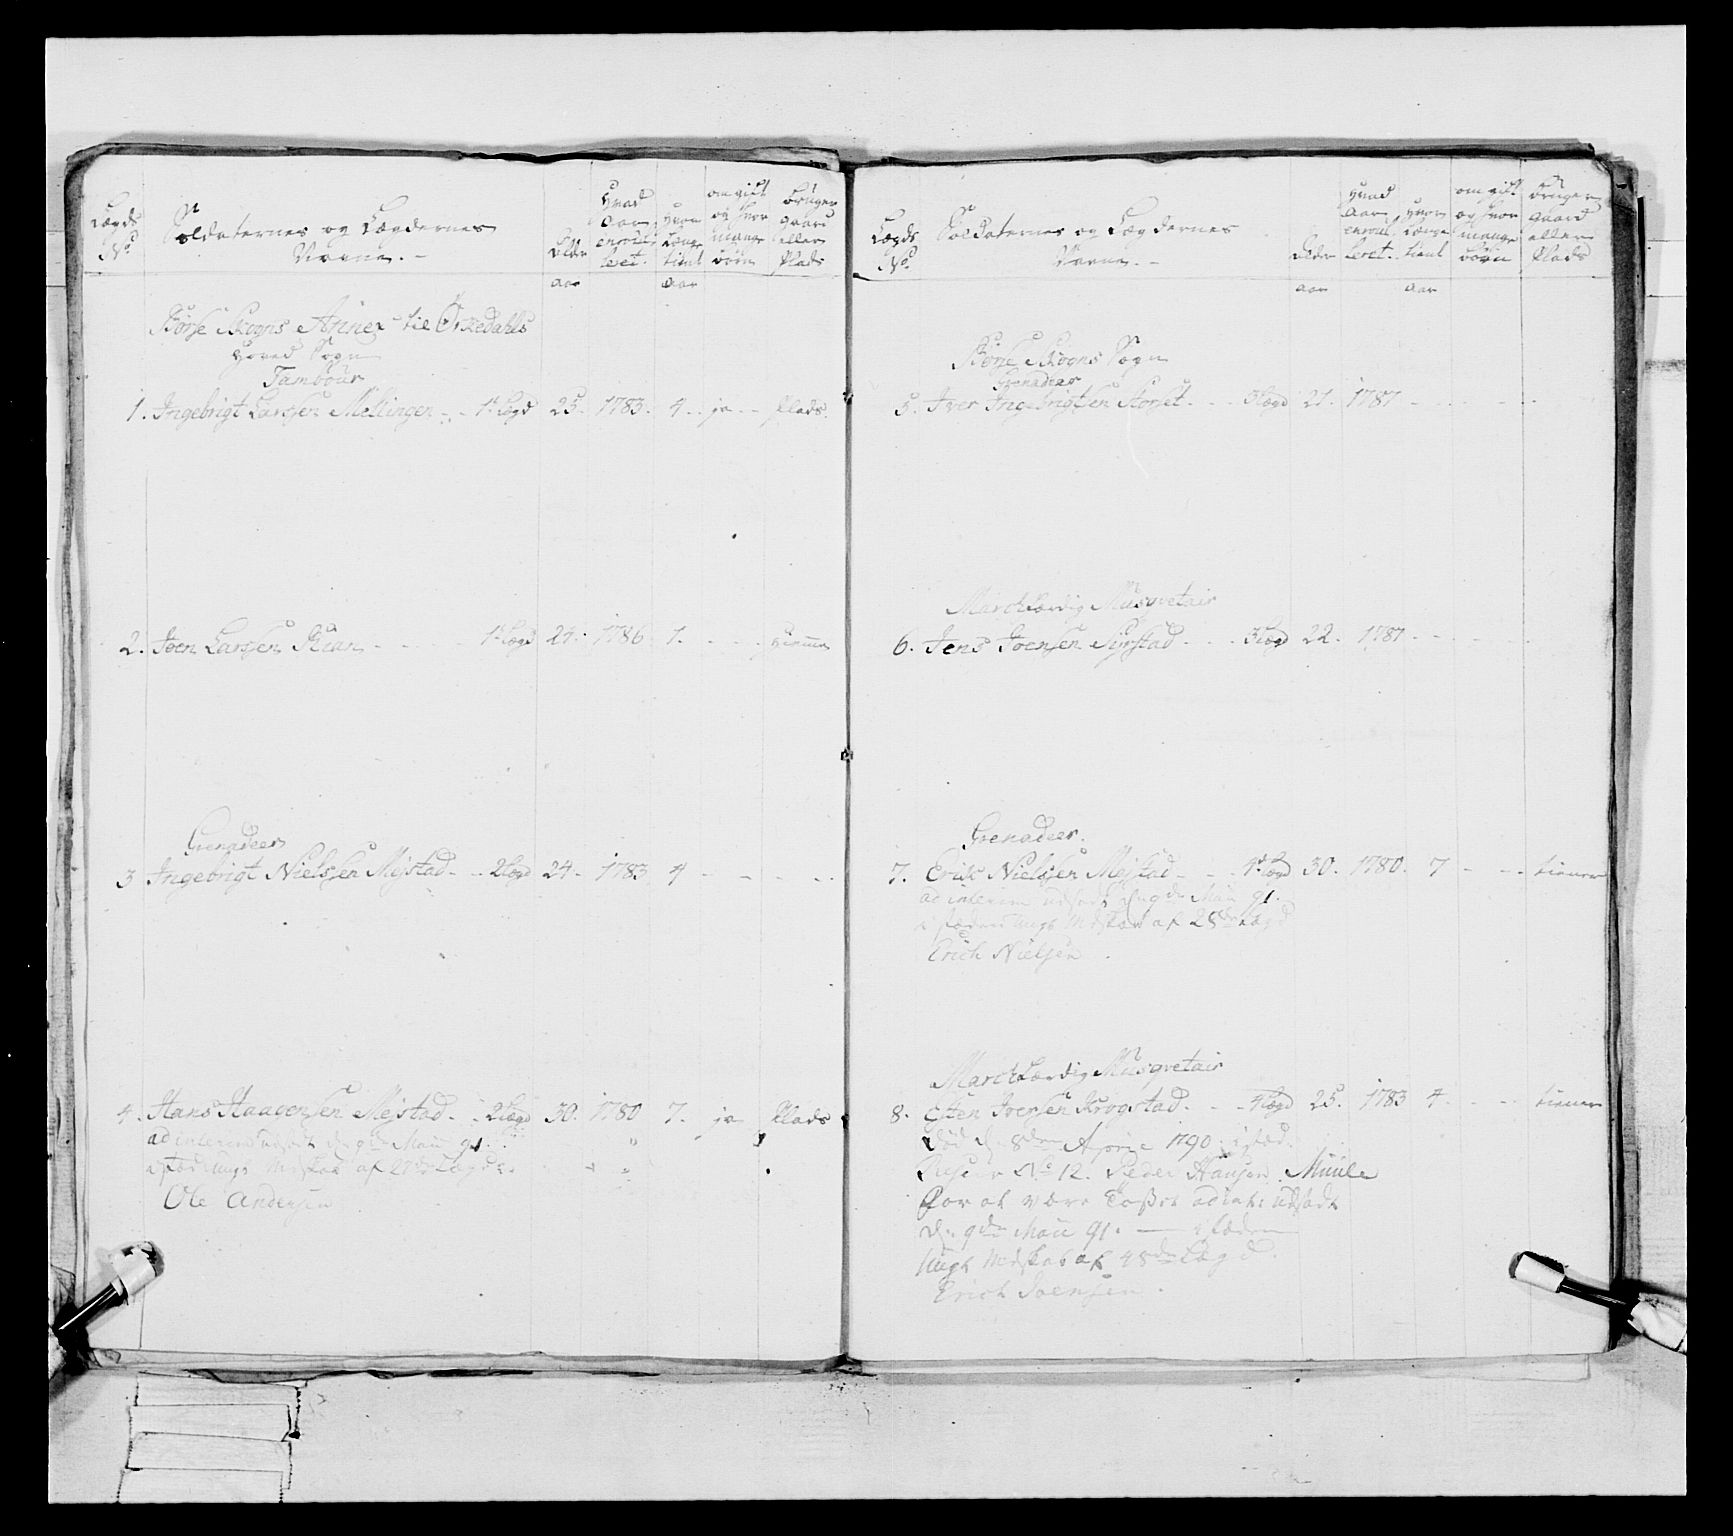 Lægds No
Soldaternes og Lægdernes Navne. -
Alder aar
Hvad Aar enroulleret.
Hvor Længe tient aar
om gift og hvor mange börn
bruger gaard eller Plads
Börse Skogns Annex til Ørkedahls
Hoved Sogn
Tambour
1. Ingebrigt Larssen Mellingen - - 1t Lægd 25. 1783. 4 - - ja - - Plads.
2. Joen Larssen Rian - - - - 1t Lægd 21. 1786 1. - - - - hiemme
Grenadeer
3 Ingebrigt Nielssen Mejstad - - 2 Lægd 24 - 1783 4 - - - -
4. Hans Haagensen Mejstad - - 2 Lægd 30. 1780 7. ja Plads
ad interim udsat d. 9de Maii 91.
istæd ungt Mdskab af 27de Lægd
Ole Andersen
Lægds No.
Soldaternes og Lægdernes Navne. -
Alder aar
Hvad Aar enroulleret.
Hvor Længe tient aar
om gift og hvor mange börn
bruger gaard eller Plads
Börse Skogns Sogn
Grenadeer
5. Iver Ingebrigtsen Storset - - - 3 Lægd 21. 1787 - - - - -
Marchfærdig Musqvetair
6. Jens Joensen Sirstad - - - 3 Lægd 22. 1787 - - - -
Grenadeer.
7. Erik Nielssen Mejstad - - - 4de Lægd 30. 1780. 7 - - - tiener
ad interim udsat d. 9de Maii 91.
istæden ungt Mdskab af 28de Lægd
Erich Nielsen
Marchfærdig Musqvetair
8. Esten Iversen Krogstad - - - 4 Lægd 25. 1783 4 - - - tiener
död d. 8den Aprie 1790. istæd.
Reserv No 12. Peder Hansen Muule
For at være Tosset ad int: udsadt
d. 9de Maii 91. — istæden
Ungt Mdskab af 48de Lægd.
Erich Joensen.